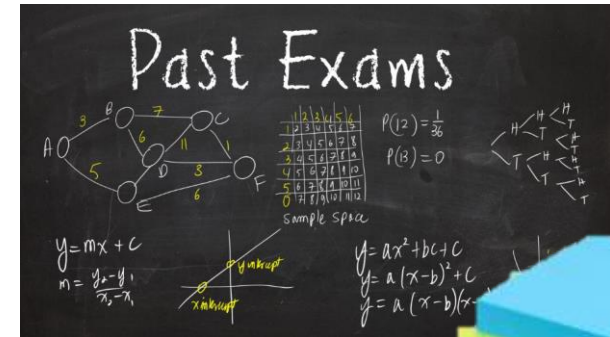 Past Exams
B 7 C
3
A 6 11 1
D 3
5 F
E 6
1 2 3 4 5 6
1 2 3 4 5 6 7
2 3 4 5 6 7 8
3 4 5 6 7 8 9
4 5 6 7 8 9 10
5 6 7 8 9 10 11
0 7 8 9 10 11 12
sample space
P(12) = 1/36
P(13) = 0
H H H
T
T H
T
T H H
T
T H
T
y = mx + c
m = y₂-y₁ / x₂-x₁
y intercept
x intercept
y = ax² + bc + c
y = a(x-b)² + c
y = a(x-b)(x-